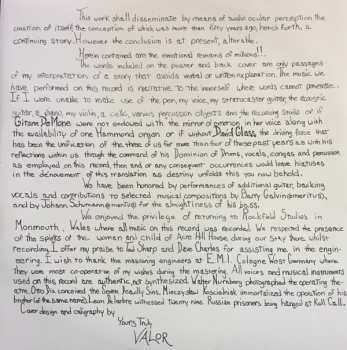 This work shall disseminate by means of audio ocular perception the
creation of itself, the conception of which was more than fifty years ago, hence forth, a
continuing story. However the conclusion is at present, alterable.
Herein contained are the emotional remains of millions!!
The words included on the poster and back cover are only passages
of my interpretation of a story that avoids verbal or written explanation. The music we
have performed on this record is narrative to the innerself where words cannot penetrate.
If I were unable to make use of the pen, my voice, my stratocaster guitar, the acoustic
guitar, a piano, my violin, a cello, various percussion objects and the receiving smile or if
Gitam DeMone were not endowed with the mirror of emotion, in her voice along with
the availability of one Hammond organ or if without David Glass, the driving force that
has been the unification of the three of us for more than four of these past years as with his
reflections within us though the command of his Dominion of Drums, vocals, congas, and percussion
as employed on this record, then and or any consequent occurrences would have hesitated
in the dénouement of this translation as destiny unfolds this you now behold.
We have been honored by performances of additional guitar, backing
vocals and contributions to selected musical compositions by Barry Galvin (emeritus),
and by Johann Schumann (emerito) for the almightiness of his bass.
We enjoyed the privilege of returning to Rockfield Studios in
Monmouth, Wales where all music on this record was recorded. We respected the presence
of the spirits of the women and child of Amie Hill House during our stay there whilst
recording. I offer my praise to Lu Sharp and Dave Charles for assisting me in the engin-
eering. I wish to thank the mastering engineers at E.M.I. Cologne West Germany where
they were most co-operative of my wishes during the mastering. All voices and musical instruments
used on this record are authentic, not synthesized. Walter Nurnberg photographed the operating the-
atre. Otto Dix conceived the Seven Deadly Sins. Mieczyslaw Koscielniak immortalized the operation of his
brother (of the same name). Leon Delarbre witnessed twenty nine Russian prisoners being hanged at Kull Call.
Cover design and caligraphy by
Yours Truly
VALOR